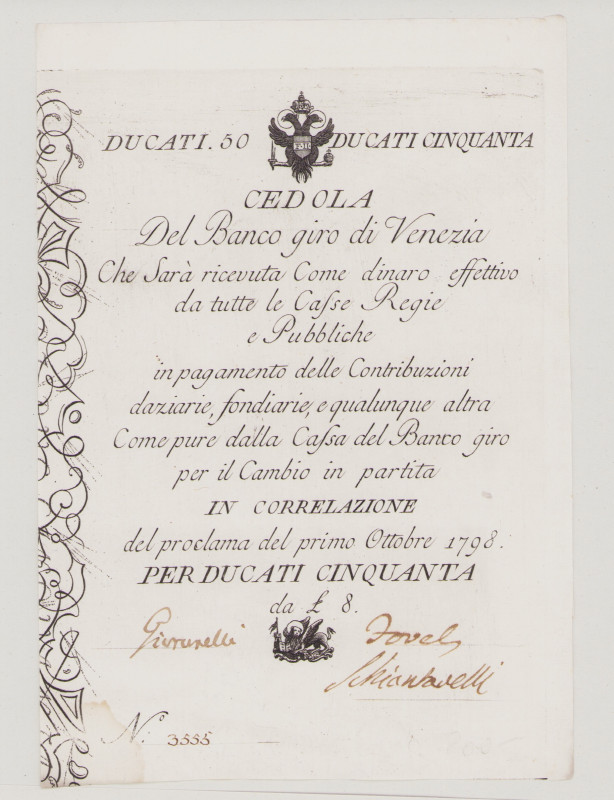 DUCATI. 50 DUCATI CINQUANTA
CEDOLA
Del Banco giro di Venezia
Che Sarà ricevuta Come dinaro effettivo
da tutte le Casse Regie
e Pubbliche
in pagamento delle Contribuzioni
daziarie, fondiarie, e qualunque altra
Come pure dalla Cassa del Banco giro
per il Cambio in partita
IN CORRELAZIONE
del proclama del primo Ottobre 1798.
PER DUCATI CINQUANTA
da £ 8.
Schiantarelli
N.º 3555